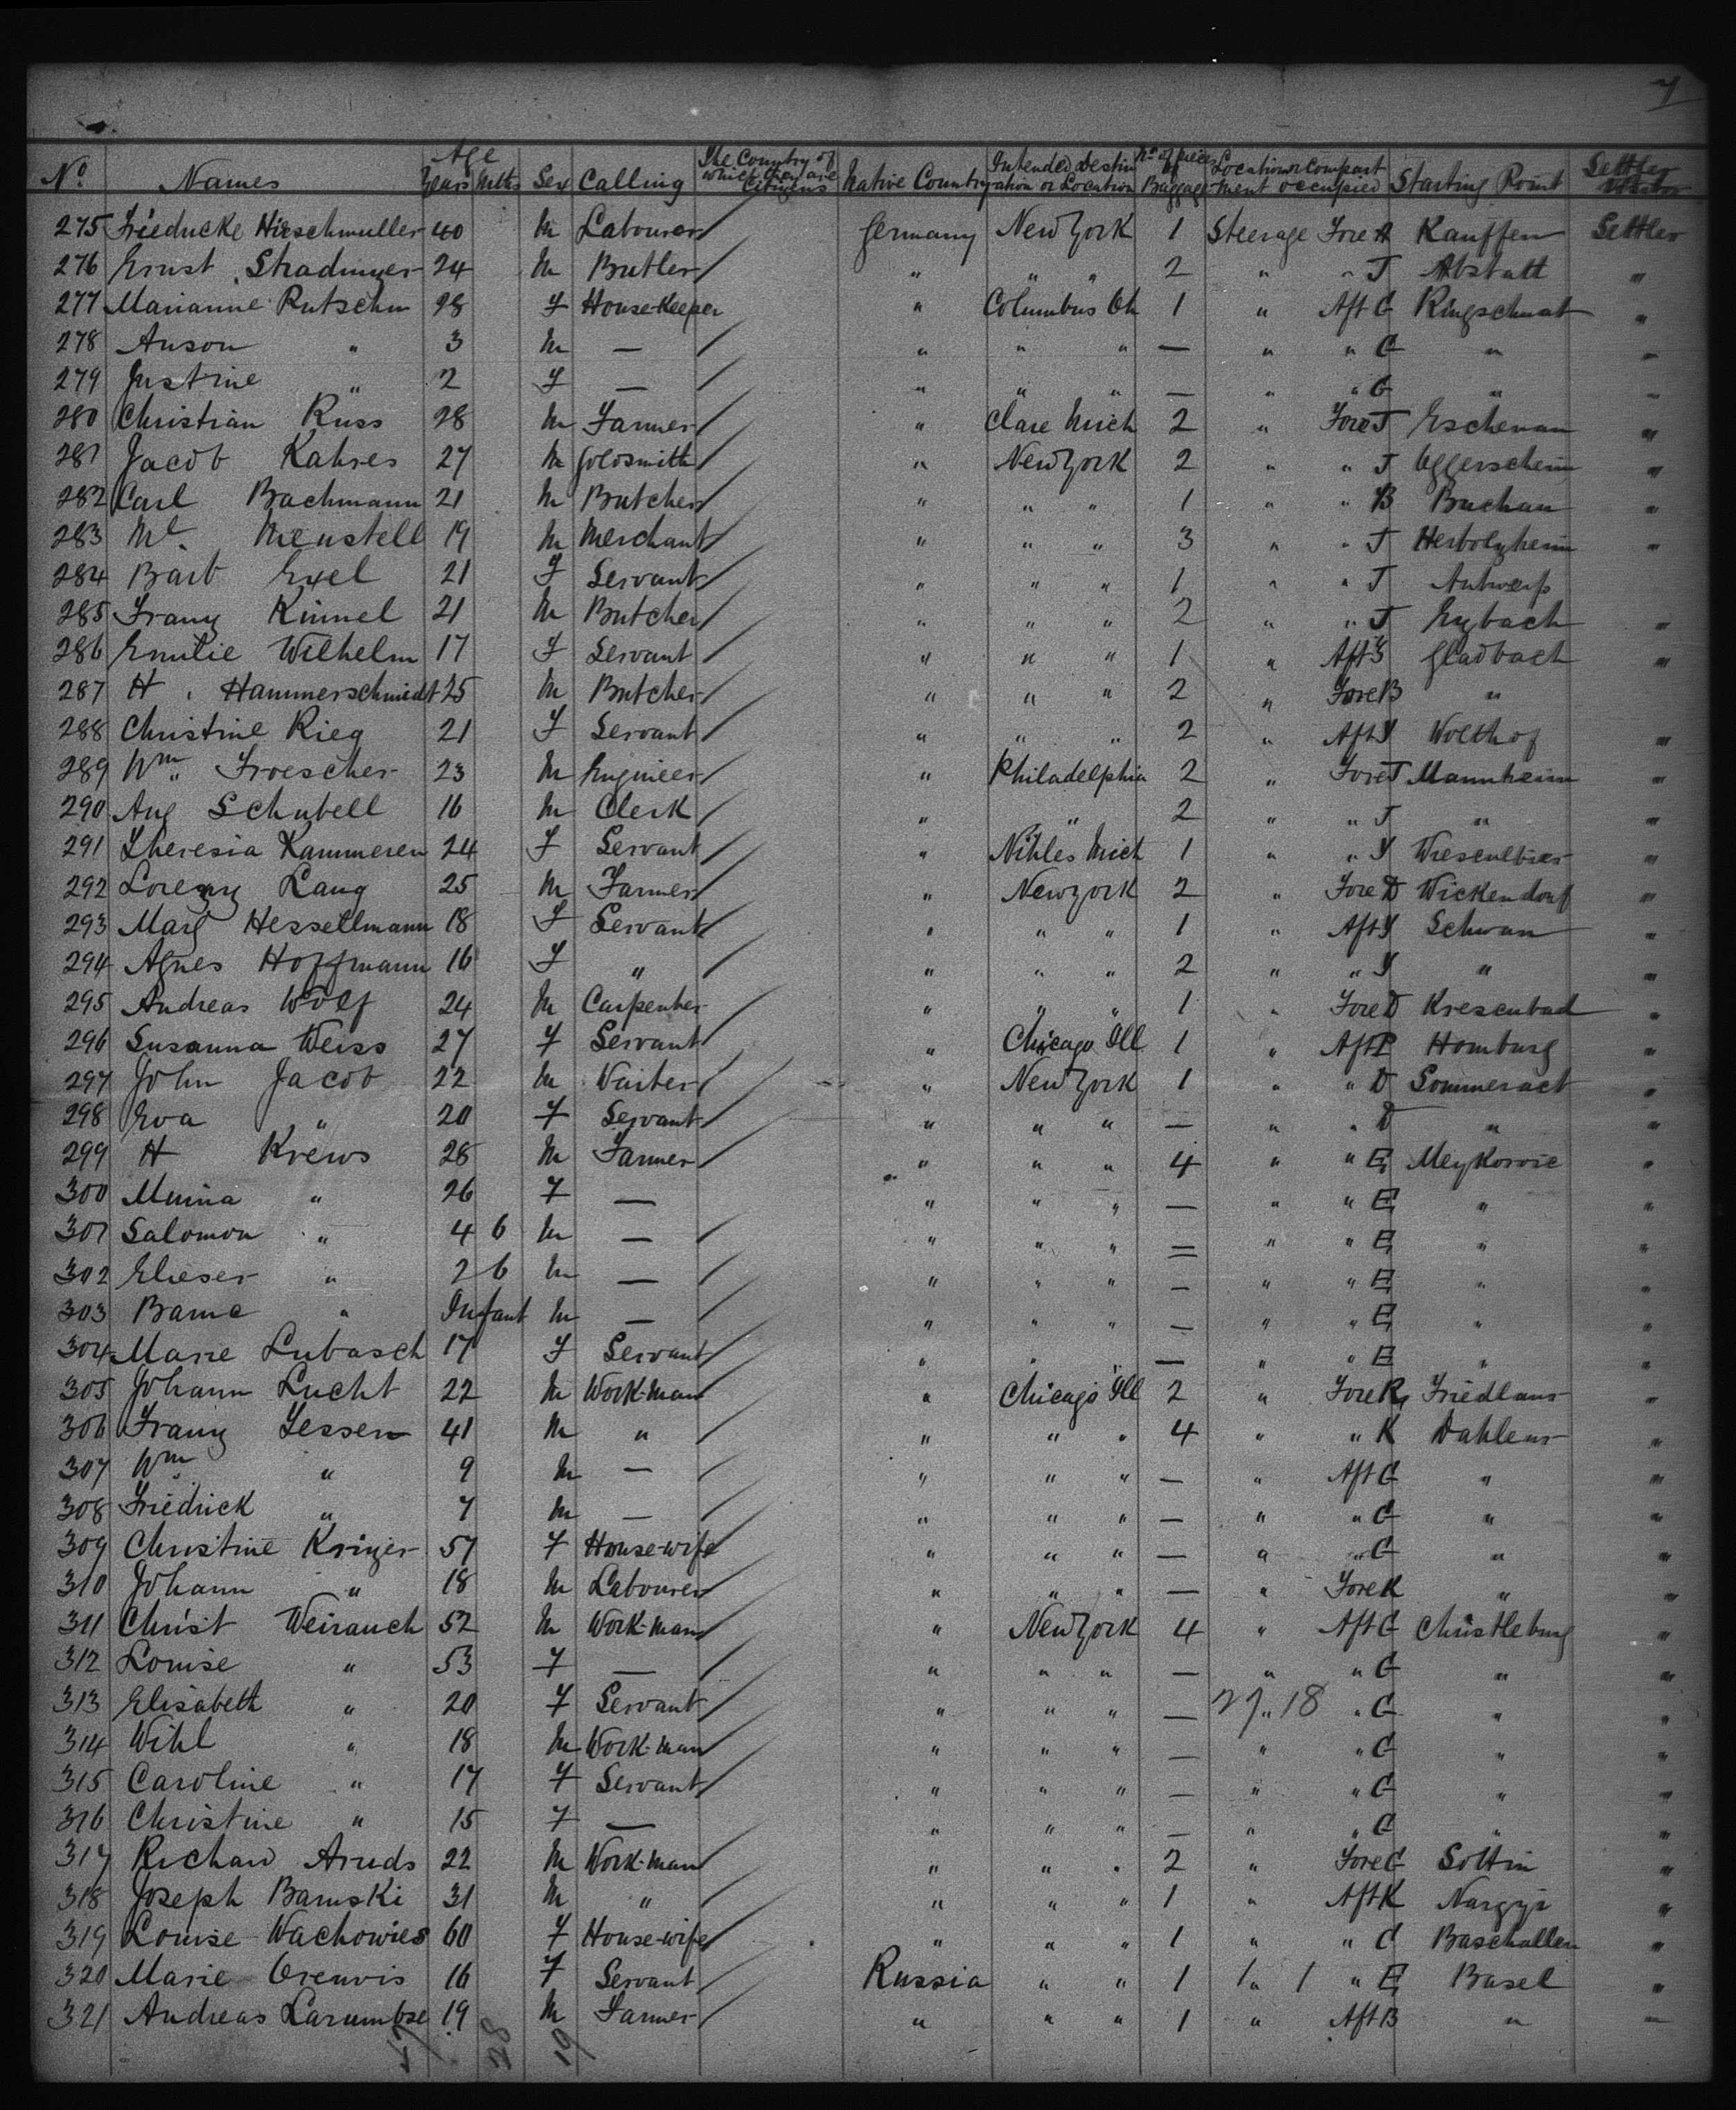 7
No. Names Age Years Mths Sex Calling The Country of which they are Citizens Native Country Intended Destination or Location No. of pieces of Baggage Location or Compartment occupied Starting Point Settler
275 Friedricke Hirschmuller 40 M Labourer Germany New York 1 Steerage Fore A Kauffen Settler
276 Ernst Stradinger 24 M Butler " " " 2 " " J Abstatt "
277 Marianne Rutschn 28 F House-Keeper " Columbus Oh 1 " Aft G Ringschnat "
278 Anson " 3 M — " " " — " " G " "
279 Justine " 2 F — " " " — " " G " "
280 Christian Russ 28 M Farmer " Clare Mich 2 " Fore J Eschenau "
281 Jacob Kahres 27 M Goldsmith " New York 2 " " J Oggerscheim "
282 Carl Bachmann 21 M Butcher " " " 1 " " B Buchau "
283 Ml. Menstell 19 M Merchant " " " 3 " " J Herbolzheim "
284 Barb Exel 21 F Servant " " " 1 " " J Antwerp
285 Franz Kinnel 21 M Butcher " " " 2 " " J Eybach "
286 Emilie Wilhelm 17 F Servant " " " 1 " Aft Y Gladbach "
287 H. Hammerschmidt 25 M Butcher " " " 2 " Fore B "
288 Christine Rieg 21 F Servant " " " 2 " Aft Y Wolthof "
289 Wm. Froescher 23 M Engineer " Philadelphia 2 " Fore J Mannheim "
290 Aug Schubell 16 M Clerk " " 2 " " J " "
291 Theresia Kammerer 24 F Servant " Nihles Mich 1 " " Y "
292 Lorenz Lang 25 M Farmer " New York 2 " Fore D Wickendorf "
293 Marg Hessellmann 18 F Servant " " " 1 " Aft Y Schwan "
294 Agnes Hoffmann 16 F " " " " 2 " " Y " "
295 Andreas Wolf 24 M Carpenter " " " 1 " Fore D Kresenbad "
296 Susanna Weiss 27 F Servant " Chicago Ill 1 " Aft P Homburg "
297 John Jacob 22 M Waiter " New York 1 " " D Sommeract "
298 Eva " 20 F Servant " " " — " " D " "
299 H Krews 28 M Farmer " " " 4 " " E Meykorvie "
300 Minna " 26 F — " " " — " " E " "
301 Salomon " 4 6 M — " " " — " " E " "
302 Elieser " 2 6 M — " " " — " " E " "
303 Barne " Infant M — " " " — " " E " "
304 Marie Lubasch 17 F Servant " " " — " " E " "
305 Johann Lucht 22 M Work-man " Chicago Ill 2 " Fore R Friedland "
306 Franz Jessen 41 M " " " " 4 " " K Dahlens "
307 Wm. " 9 M — " " " — " Aft G " "
308 Friedrick " 7 M — " " " — " " G " "
309 Christine Kriger 57 F House-wife " " " — " " G " "
310 Johann " 18 M Labourer " " " — " Fore K " "
311 Christ Weirauch 52 M Work-man " New York 4 " Aft G Christleburg "
312 Louise " 53 F — " " " — " " G " "
313 Elisabeth " 20 F Servant " " " — 27 " 18 " G " "
314 Wihl " 18 M Work-man " " " — " " G " "
315 Caroline " 17 F Servant " " " — " " G " "
316 Christine " 15 F — " " " — " " G " "
317 Richard Arnds 22 M Work-man " " " 2 " Fore G Soltin "
318 Joseph Bamski 31 M " " " " 1 " Aft K "
319 Louise Wachowies 60 F House-wife " " " 1 " " C Baschallen "
320 Marie Orenvis 16 F Servant Russia " " 1 1 " 1 " E Basel "
321 Andreas Larumbse 19 M Farmer " " " 1 " Aft B " "
28 19